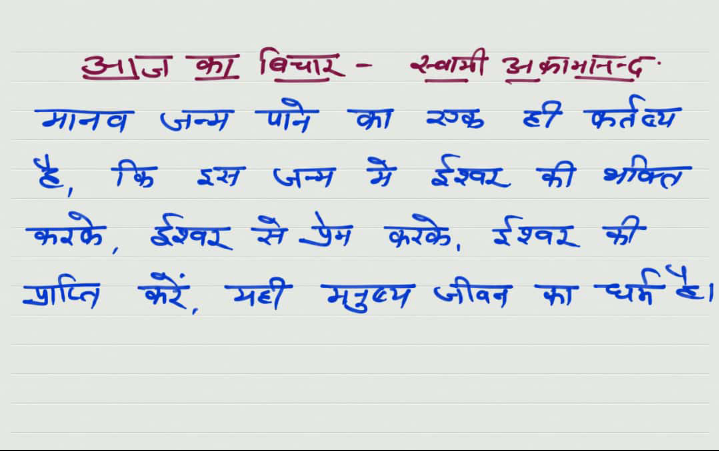 आज का बिचार - स्वामी अकामानन्द.
मानव जन्म पाने का एक ही कर्तव्य
है, कि इस जन्म मे ईश्वर की भक्ति
करके, ईश्वर से प्रेम करके, ईश्वर की
प्राप्ति करें, यही मनुष्य जीवन का धर्म है।